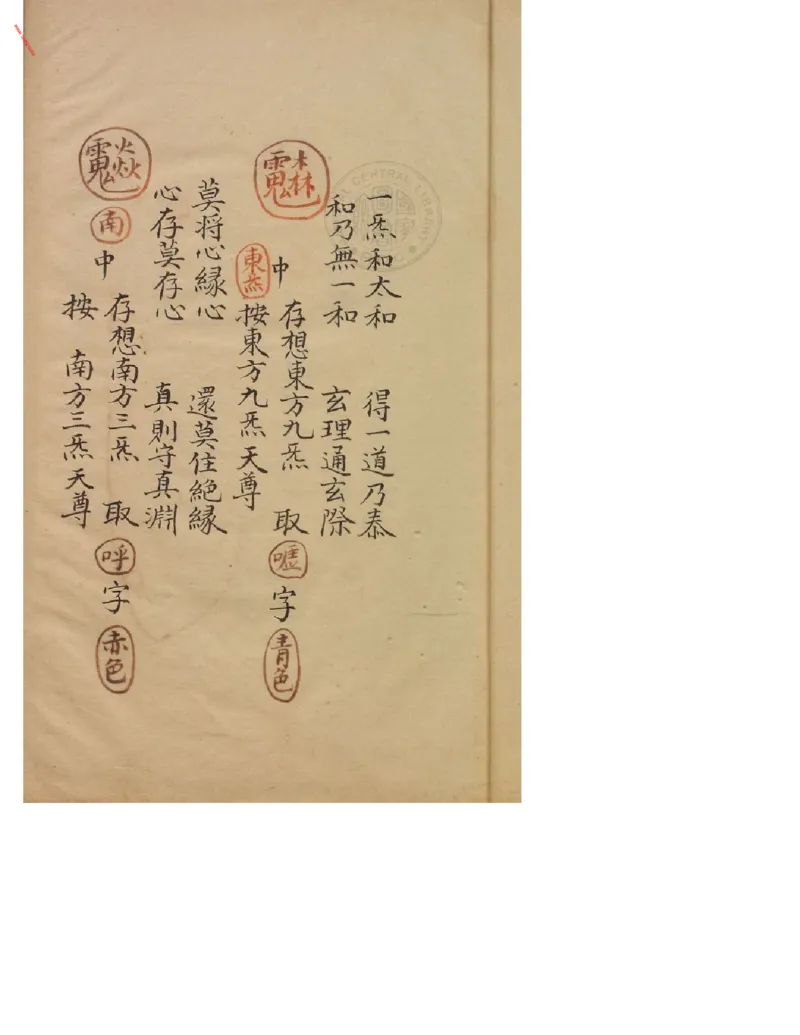 一炁和太和 得一道乃泰
和乃無一和 玄理通玄際
中 存想東方九炁 取 嘘 字 青色
東炁 按東方九炁天尊
莫将心緣心 還莫住絕緣
心存莫存心 真則守真淵
南 中 存想南方三炁 取 呼 字 赤色
按 南方三炁天尊
CENTRAL LIBRARY